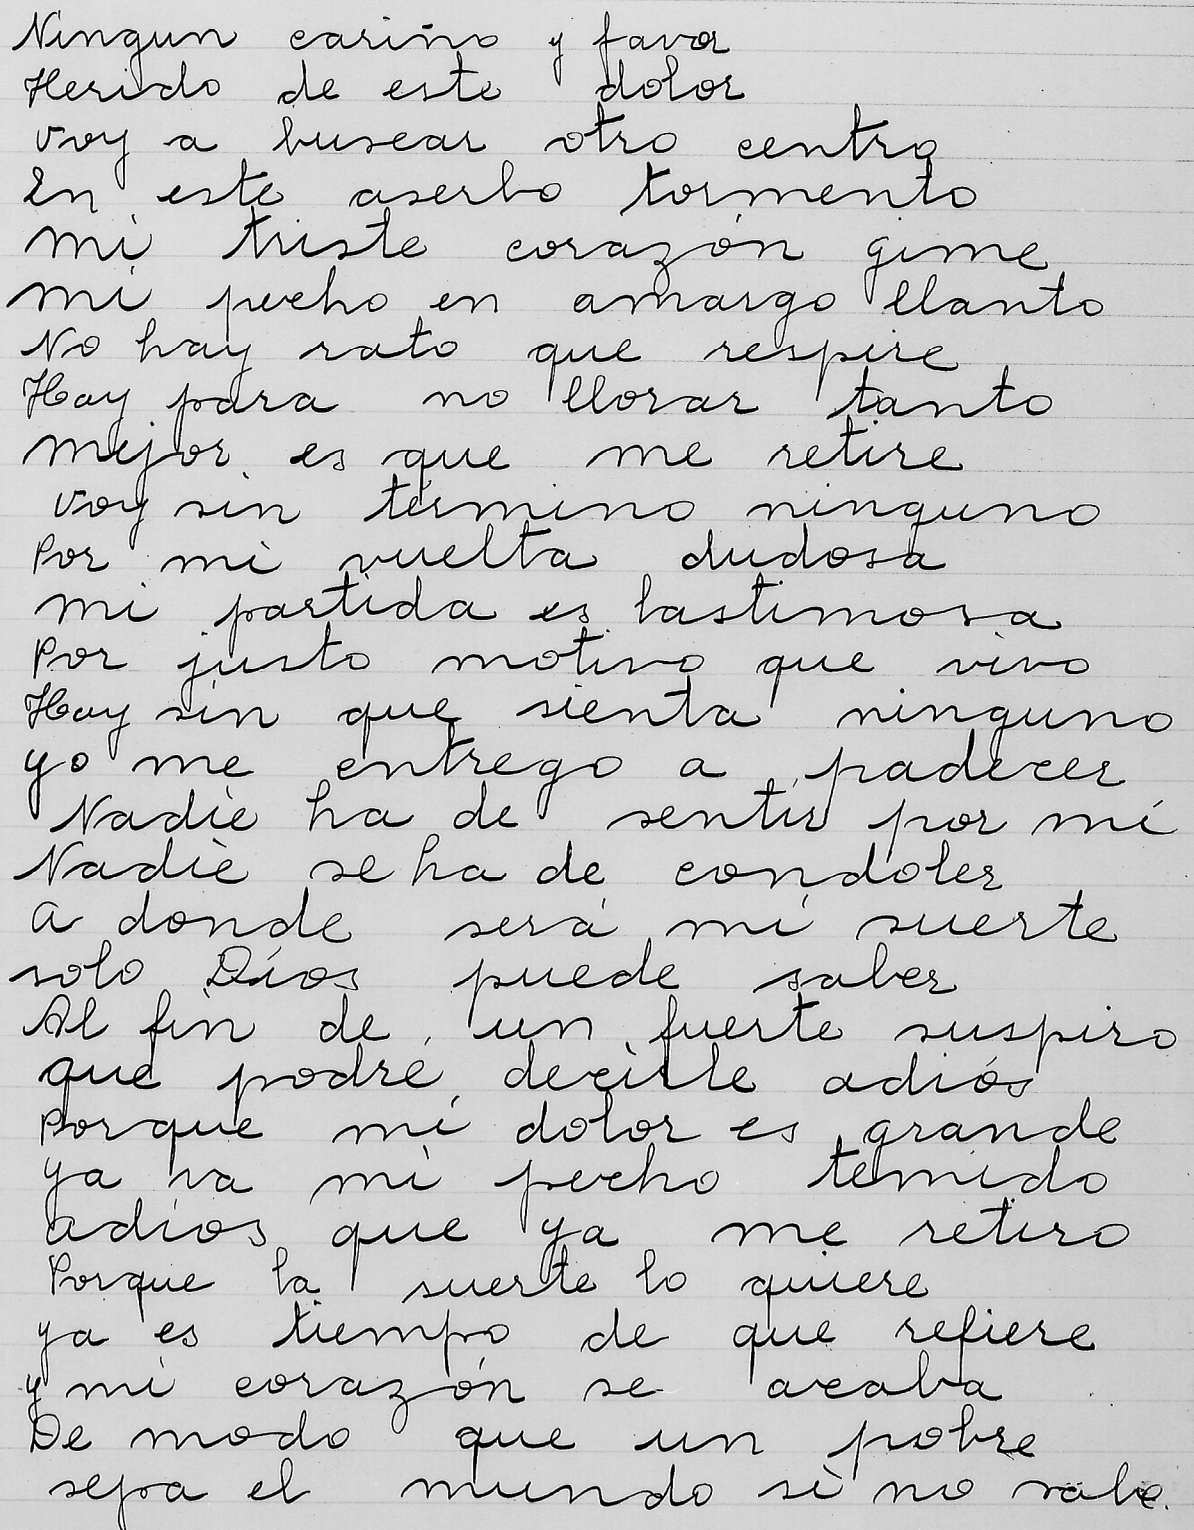 Ningun cariño y favor
Herido de este dolor
voy a buscar otro centro
En este aserbo tormento
mi triste corazón gime
mi pecho en amargo llanto
No hay rato que respire
Hay para no llorar tanto
mejor es que me retire
voy sin término ninguno
Por mi vuelta dudosa
mi partida es lastimosa
Por justo motivo que vivo
Hay sin que sienta ninguno
yo me entrego a padecer
Nadie ha de sentir por mí
Nadie se ha de condoler
a donde será mi suerte
solo Dios puede saber
Al fin de un fuerte suspiro
que podré decirle adiós
Porque mi dolor es grande
ya va mi pecho temido
adios que ya me retiro
Porque la suerte lo quiere
ya es tiempo de que refiere
y mi corazón se acaba
De modo que un pobre
sepa el mundo si no vale.